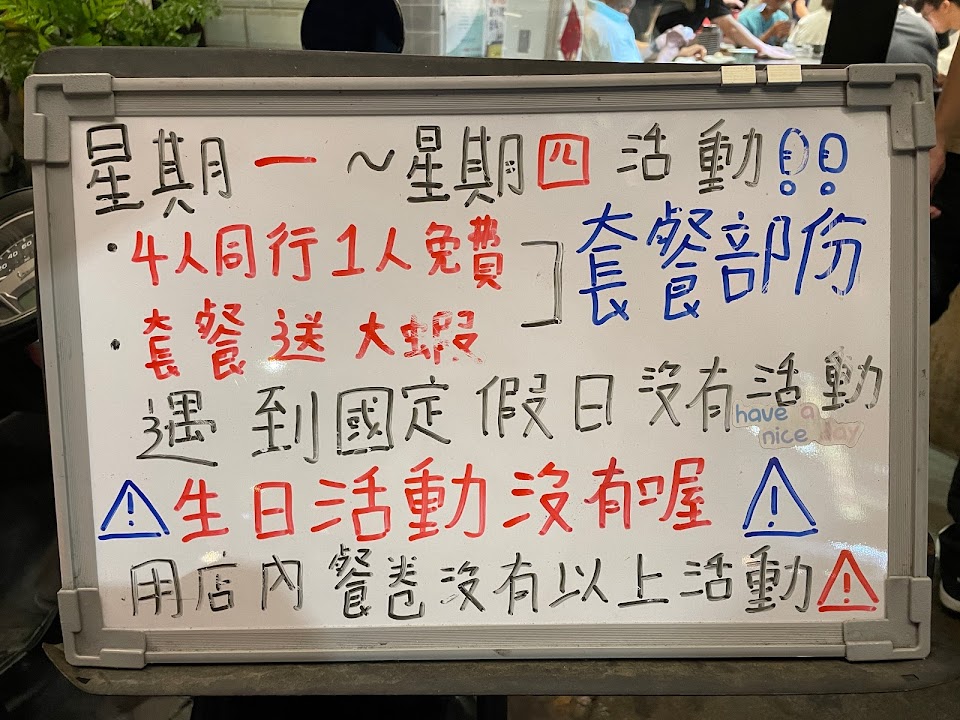 星期一~星期四活動!!
・4人同行1人免費
・套餐送大蝦
套餐部份
遇到國定假日沒有活動
have a nice day
⚠生日活動沒有喔⚠
用店內餐卷沒有以上活動⚠